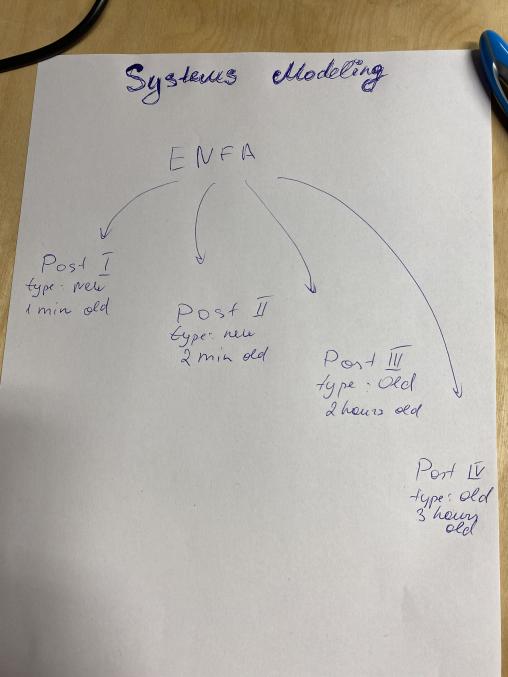 Systems Modeling
ENFA
Post I
type: new
1 min old
Post II
type: new
2 min old
Post III
type: Old
2 hours old
Post IV
type: old
3 hours
old